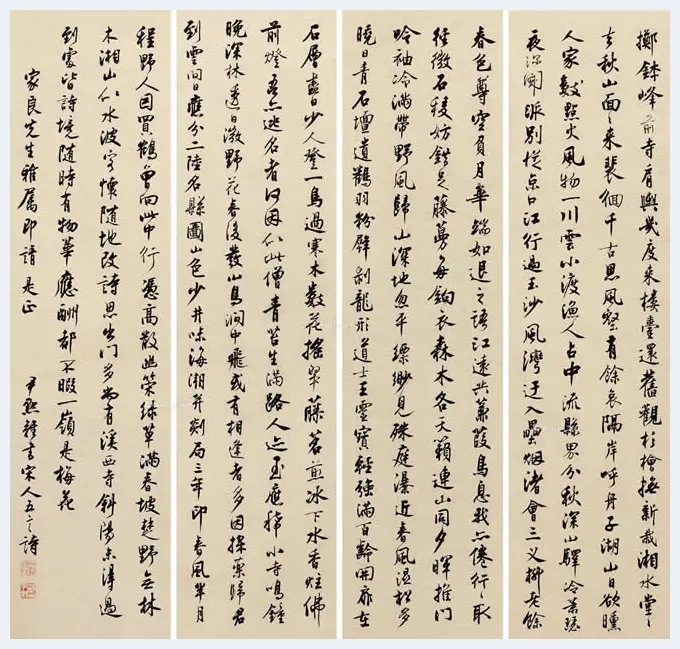 擲鉢峰前寺肩輿幾度来樓臺還舊觀杉檜換新栽湘水堂堂
去秋山面面来裴徊千古思風磬有餘哀隔岸呼舟子湖山日欲曛
人家數點火風物一川雲小渡漁人占中流縣界分秋深山驛冷葉瑟
夜深聞眠別從京口江行過玉沙風灣迂入罾烟渚會三义柳老餘
春色尊空負月華端如退之語江遠共蒹葭鳥息我亦倦行行取
徑微石稜妨錯足藤蔓每鉤衣森木各天籟連山同夕暉推門
吟袖冷滿帶野風歸山深地忽平縹緲見殊庭瀑近春風湿松多
曉日青石壇遺鶴羽粉壁剥龍形道士王靈寶經強滿百齡開扉在
石層盡日少人登一鳥過寒木數花摇翠藤茗煎冰下水香炷佛
前燈吾亦逃名者何因似此僧青苔生滿路人迹至應稀小寺鳴鐘
晚深林透日微野花春後發山鳥澗中飛或有相逢者多因採藥歸君
到雲間日應分二陸名縣圖山色少井味海潮并剡局三年印春風半月
程野人因買鶴曾向此中行憑高散幽策緑草滿春坡楚野無林
木湘山似水波客懷随地改詩思出門多尚有溪西寺斜陽未得過
到處皆詩境随時有物華應酬都不暇一嶺是梅花
家良先生雅属即請是正
尹默雜書宋人五言詩